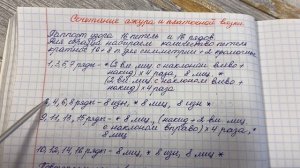 Сочетание ажура и платочной вязки.
Раппорт узора 16 петель и 16 рядов.
Для образца набираем количество петель
кратное 16 + 8 п для симметрии + 2 кромочные
1, 3, 5, 7 ряды - * (2 вм лиц с наклоном влево +
накид) x 4 раза, 8 лиц *
(2 вм лиц с наклоном влево +
накид) x 4 раза
2, 4, 6, 8 ряды - 8 изн, * 8 лиц, 8 изн *
9, 11, 13, 15 ряды - * 8 лиц, (накид + 2 вм лиц
с наклоном вправо) x 4 раза, *
8 лиц
10, 12, 14, 16 ряды - 8 лиц, * 8 изн, 8 лиц *